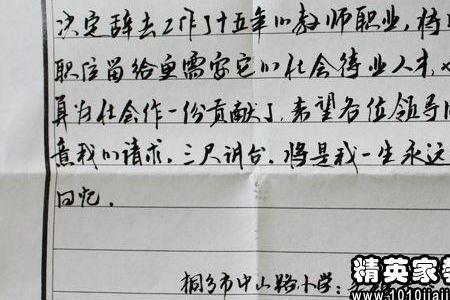 决定辞去工作了十五年的教师职业，将
职位留给更需要它的社会待业人才，
算为社会作一份贡献了，希望各位领导同
意我的请求，三尺讲台，将是我一生永远
回忆。
桐乡市中山路小学：
精英家教
www.1010jiajiao